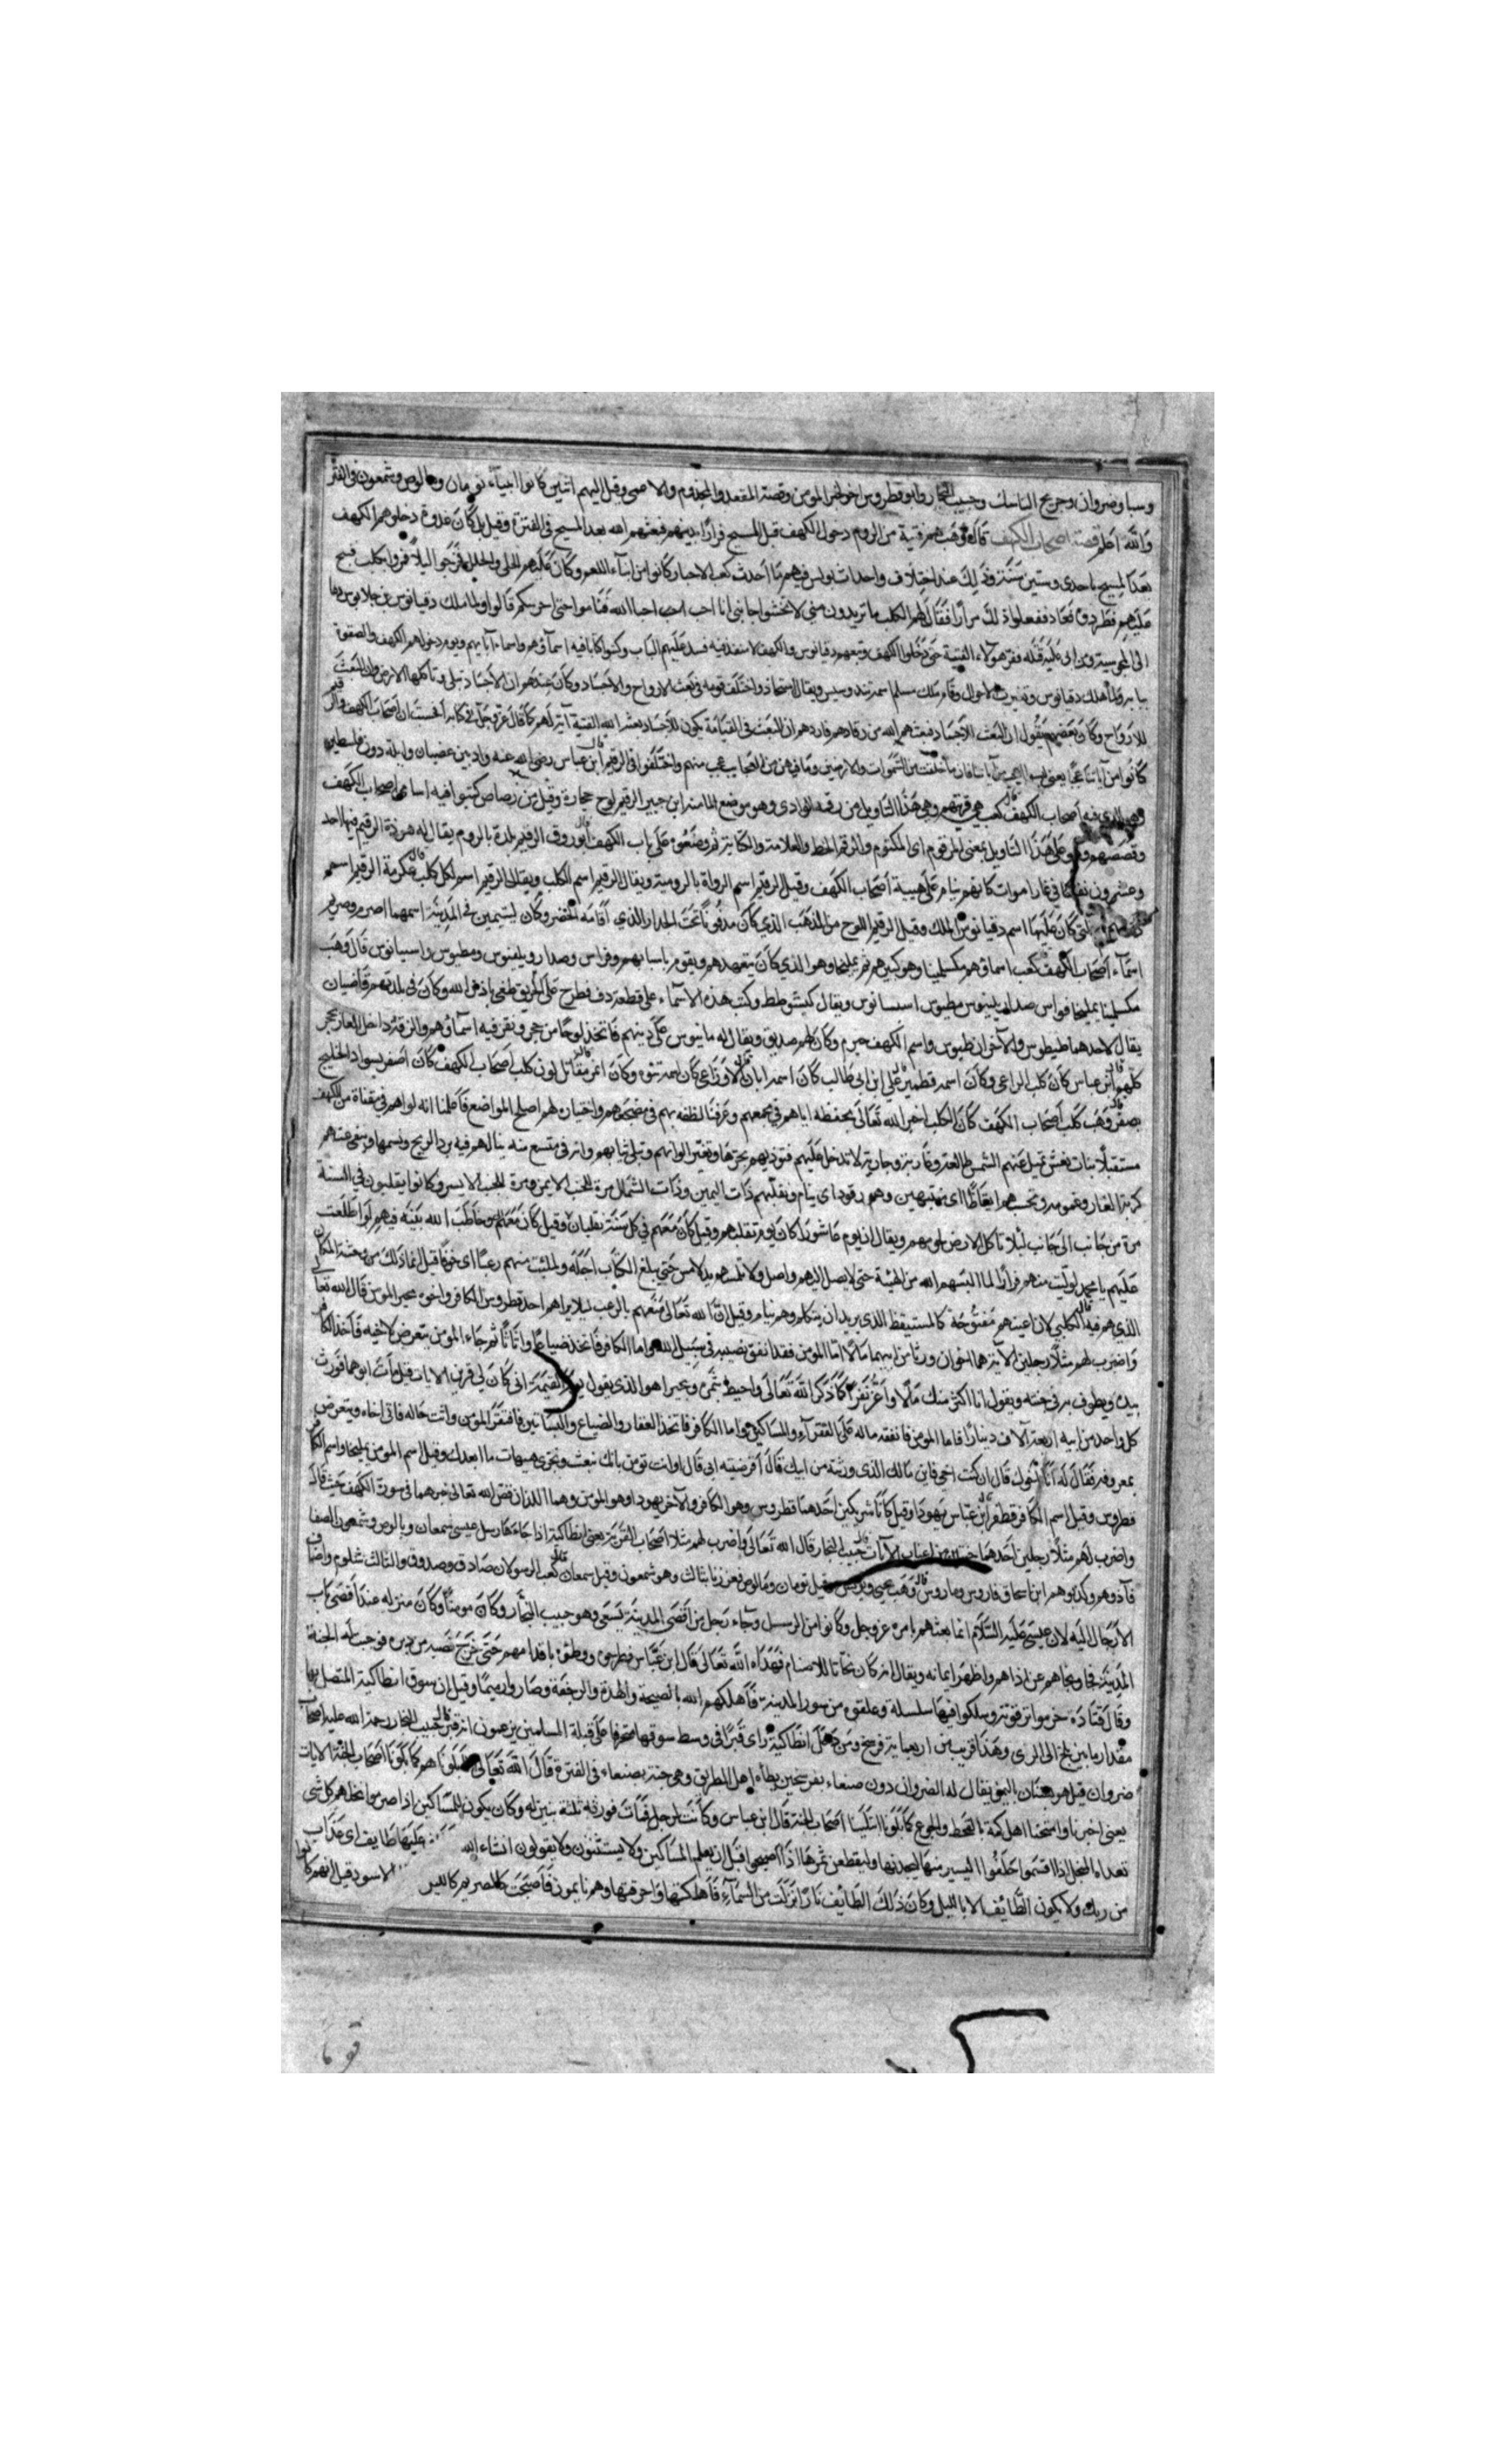 وسبا وضروان وجريج الناسك وحبيب النجار وابو قطروس اخو المؤمن وقصة المقعد والمجذوم والاعمى وقيل اليهم اثنين كانوا انبياء تومان ومالوص وشمعون في الفتر
والله اعلم قصة اصحاب الكهف قال وهب هم فتية من الروم دخول الكهف قبل المسيح فرارا بدينهم فبعثهم الله بعد المسيح في الفترة وقيل بل كان دخولهم الكهف
بعد المسيح باحدى وستين سنة وذلك عند اختلاف واحداث بولس فيهم ما احدث كعب الاحبار كانوا من ابناء وكان عليهم الحلي والحلل فخرجوا ليلا فمروا بكلب فنبح
عليهم فطردوه فعاد ففعلوا ذلك مرارا فقال لهم الكلب ما تريدون مني لا تخشوا جانبي انا احب احباء الله فناموا حتى احرسكم قالوا ولما ملك دقيانوس بن جلانوس دعا
الى المجوسية ومن ابى عليه قتله ففر هولاء الفتية حتى دخلوا الكهف وتبعهم دقيانوس والكهف لا منفذ فيه فسد عليهم الباب وكتبوا كتابا فيه اسماؤهم واسماء آبائهم ويوم دخولهم الكهف
هلك دقيانوس وتغيرت الاحوال وقام ملك مسلم اسمه تندوسيس ويقال استحاذ واختلف قومه في بعث الارواح والاجساد وكان عندهم ان الاجساد تبلى وتاكلها الارض
للارواح وكان بعضهم يقول ان البعث الاجساد فبعثهم الله من رقادهم فاراهم ان البعث في القيامة يكون للاجساد بعث الله الفتية آية لهم كما قال عز وجل في كتابه ام حسبت ان اصحاب الكهف والرقيم
كانوا من آياتنا عجبا يعني من آياتنا فان ما خلقت من السموات والارضين وما فيهن من العجايب اعجب منهم واختلفوا في الرقيم قال ابن عباس رضي الله عنه واد بين عضبان وايلة دون فلسطين
فيه اصحاب الكهف قال كعب هي قريتهم وعلى هذا التاويل من رقمة الوادي وهو موضع الماء قال ابن جبير الرقيم لوح حجارة وقيل من رصاص كتبوا فيه اسامي اصحاب الكهف
وقصصهم وعلى هذا التاويل بمعنى المرقوم اى المكتوم والرقم الخط والعلامة والكتابة ثم وضعوه على باب الكهف قال ابو روق الرقيم بلدة بالروم يقال له هرذة الرقيم فيها احد
وعشرون نفسا في غار اموات كانهم نيام على هيبة اصحاب الكهف وقيل الرقيم اسم الرواة بالرومية ويقال الرقيم اسم الكلب ويقال الرقيم اسم لكل كلب قال عكرمة الرقيم اسم
التي كان عليها اسم دقيانوس الملك وقيل الرقيم اللوح من الذهب الذي كان مدفونا تحت الجدار الذي اقامه الخضر وكان ليتيمين في المدينة اسمهما اصرم وصريم
اسماء اصحاب الكهف قال كعب اسماؤهم مكسلينا وهو كبيرهم ثم يمليخا وهو الذي كان يتعهدهم ويقوم باسبابهم وفراس وصدار ويلينوس ومطيوس واسيبانوس قال وهب
مكسلينا يمليخا فواس صدار يلينوس مطيوس اسسانوس ويقال كيشوطط وكتب هذه الاسماء على قطعة دف فطرح على الحريق طفى باذن الله وكان في بلدتهم قاضيان
يقال لاحدهما طيطوس والاخر ان طيوس واسم الكهف حيرم وكان لهم صديق ويقال له مانيوس على دينهم فاتخذ لوحا من حجر ونقر فيه اسماؤهم والرقم داخل الغار بحجر
كلبهم قال ابن عباس كان كلب الراعي وكان اسمه قطمير قال علي ابن ابي طالب كان اسمه رابان قال الاوزاعي كان اسمه تتوه وكان انمر قال مقاتل لون كلب اصحاب الكهف كان اصفر بسواد الخليج
بصفر قال وهب كلب اصحاب الكهف كان الكلب اخبر الله تعالى بحفظه اياهم في مجمعهم وعرفنا لطفه بهم في مضجعهم واختياره لهم اصلح المواضع فاعلمنا انه بواهم في مقناة من الكهف
مستقبلا بنات نعش تميل عنهم الشمس طالعة وغاربة وجارية لا تدخل عليهم فتوذيهم بحرها وتغير الوانهم وتبلى ثيابهم وانهم في متسع منه ينالهم فيه برد الريح ونسيمها وينفي عنهم
كربة الغار وغمومه وتحسبهم ايقاظا اى منتبهين وهم رقود اى ينام ونقلبهم ذات اليمين وذات الشمال مرة للجنب الايمن ومرة للجنب الايسر وكانوا يتقلبون في السنة
مرة من جانب الى جانب لئلا تاكل الارض لحومهم ويقال ان يوم عاشورا كان يوم تقلبهم وقيل كان معهم في كل سنة نقلبان وقيل كان معهم وخاطب الله نبيه فيهم لو اطلعت
عليهم يا محمد لوليت منهم فرارا لما البسهم الله من الهيئة حتى لا يصل اليهم واصل ولا تلمسهم يد لامس حتى يبلغ الكتاب اجله ولملئت منهم رعبا اى خوفا قيل انما ذلك من وحشة المكان
الذي هم فيه قال الكلبي لان اعينهم مفتوحة كالمستيقظ الذي يريد ان يتكلم وهم نيام وقيل ان الله تعالى منعهم بالرعب ليلا يراهم احد قطروس الكافر واخوه بحير المومن قال الله تعالى
واضرب لهم مثلا رجلين الآية هما اخوان ورثا من ابيهما مالا اما المومن فقد انفق نصيبه في سبيل الله واما الكافر فاتخذ ضياعا واثاثا ثم جاء المومن يتعرض لاخيه فاخذ الكافر
بيده ويطوف به في جنته ويقول انا اكثر منك مالا واعز نفرا كما ذكر الله تعالى واحيط بثمره وبحيرا هو الذي يقول يوم القيمة انى كان لي قرين الايات قيل مات ابوهما فورث
كل واحد من ابيه اربعة آلاف دينارا فاما المومن فانفق ماله على الفقراء والمساكين واما الكافر فاتخذ العقار والضياع والبساتين فافتقر المومن واتت حاله فاتى اخاه ويتعرض
بمعروفه فقال له انا اخوك قال ان كنت اخي فاين مالك الذي ورثته من ابيك قال اقرضته ابى قال او انت تومن بانك تبعث وتجزى هيهات ما ابعدك وقيل اسم المومن يمليخا واسم الكافر
فطروس وقيل اسم الكافر قطفر قال ابن عباس يهودا وقيل كانا شريكين احدهما قطروس وهو الكافر والآخر يهودا وهو المومن وهما اللذان قص الله تعالى خبرهما في سورة الكهف حيث قال
واضرب لهم مثلا رجلين جعلنا لاحدهما جنتين من اعناب الآيات قال حبيب النجار قال الله تعالى واضرب لهم مثلا اصحاب القرية يعني انطاكية اذ جاءها رسل عيسى شمعان وبالوص وشمعون الصفا
فآذوهم وكذبوهم ابن اسحاق قاروص وماروص قال وهب يحيى ويونس وقيل تومان ومالوص فعززنا بثالث وهو شمعون وقيل سمعان قال كعب الرسولان صادق وصدوق والثالث شلوم واضاف
الارسال اليه لان عيسى عليه السلام انما بعثهم بامره عز وجل وكانوا من الرسل وجاء رجل من اقصى المدينة يسعى وهو حبيب النجار وكان مومنا وكان منزله عند اقصى باب
المدينة فجا ونجاهم عن اذاهم واظهر ايمانه ويقال انه كان نحاتا للاصنام فهداه الله تعالى قال ابن عباس فطرحوه ووطؤه باقدامهم حتى خرج قصبه من دبره فوجب له الجنة
وقال قتادة خرموا ترقوته وسلكوا فيها سلسلة وعلقوه من سور المدينة فاهلكهم الله بالصيحة والهدة والرجفة وصاروا رميما وقيل ان سوق انطاكية المتصل بها
مقدار ما بين بلخ الى الري وهذا قريب من اربعماية فرسخ ومن دخل انطاكية راى قبرا في وسط سوقها منحرفا على قبلة المسلمين يزعمون انه قبر حبيب النجار رحمة الله عليه اصحاب
ضروان قيل هو بستان باليمن يقال له الضروان دون صنعاء بفرسخين يطاه اهل الطريق وهي جنة بصنعاء في الفترة قال الله تعالى بلوناهم كما بلونا اصحاب الجنة الايات
يعني اخبرنا وامتحنا اهل مكة بالقحط والجوع كما بلونا ابتلينا اصحاب الجنة قال ابن عباس وكانت لرجل فمات فورثه ثلثة بنين له وكان يكون للمساكين اذا صرموا نخلهم كل شي
تعداه المنجل اذا اقسموا حلفوا ليصرمنها ليجدنها وليقطعن ثمرها اذا اصبحوا قبل ان يعلم المساكين ولا يستثنون ولا يقولون انشاء الله عليها طايف اى عذاب
من ربك ولا يكون الطايف الا بالليل وكان ذلك الطايف نارا نزلت من السماء فاهلكتها واحرقتها وهم نايمون فاصبحت كالصريم كالليل الاسود قيل انهم كانوا